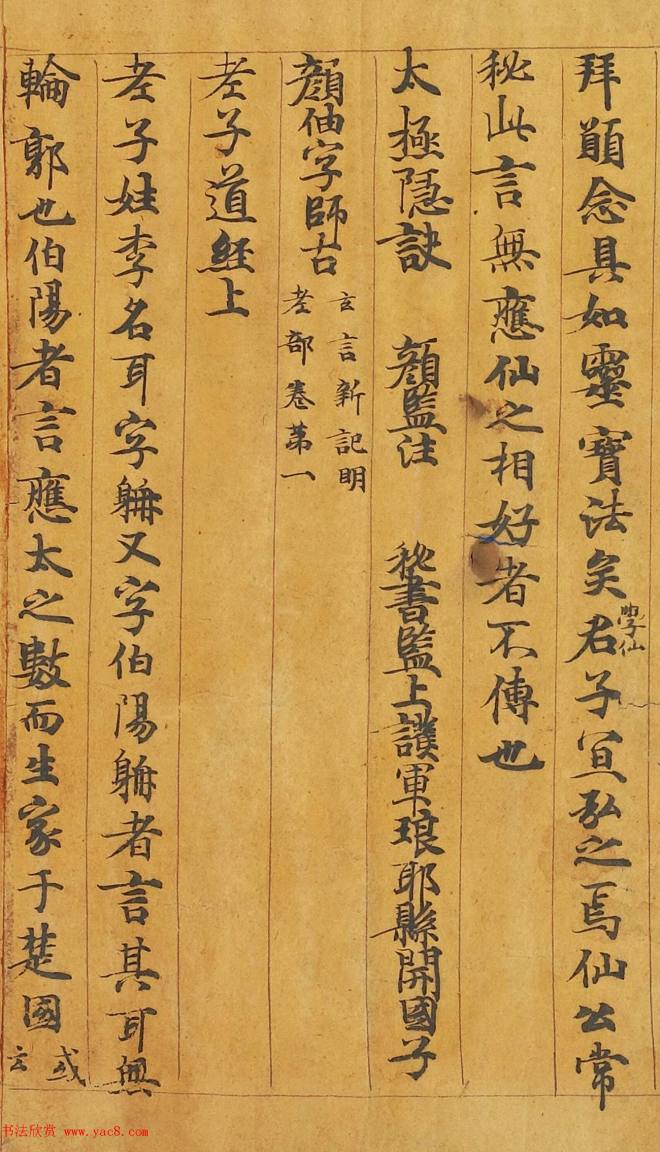 拜願念具如靈寶法矣君子學仙宜弘之焉仙公常
秘此言無應仙之相好者不傳也
太極隱訣 顏監注 秘書監上護軍琅耶縣開國子
顏伷字師古 玄言新記明
老部卷第一
老子道經上
老子姓李名耳字耼又字伯陽耼者言其耳無
輪郭也伯陽者言應太之數而生家于楚國或
云
书法欣赏 www.yac8.com